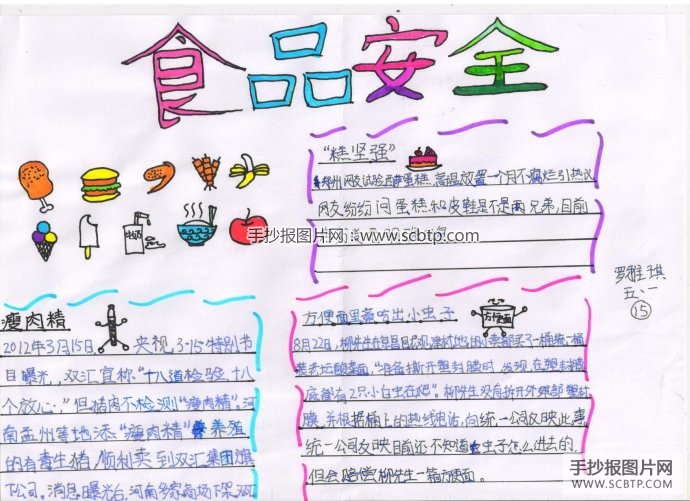 食品安全
"糕坚强"
网友试验西萨蛋糕,高温放置一个月不腐烂引热议
网友纷纷问蛋糕和皮鞋是不是两兄弟,目前
手抄报图片网 www.scbtp.com
牛奶
罗雅琪
五、一
15
瘦肉精
2012年3月15日, 央视3·15特别节
目曝光, 双汇宣称"十八道检验、十八
个放心,"但猪肉不检测"瘦肉精"。河
南孟州等地添"瘦肉精"养殖
的有毒生猪,顺利卖到双汇集团旗
下公司。消息曝光后,河南多家商场下架双汇
方便面里高吃出小虫子
方便面
8月22日,柳先生在 小卖部买了一桶统一桶
装老坛酸菜面,"准备撕开塑封膜时,发现,在塑封膜
底部有2只小白虫在爬"。柳先生没有拆开外部塑封
膜,并根据桶上的热线电话,向统一公司反映此事
统一公司反映目前还不知道虫子怎么进去的,
但会赔偿柳先生一箱方便面。
手抄报图片网
WWW.SCBTP.COM